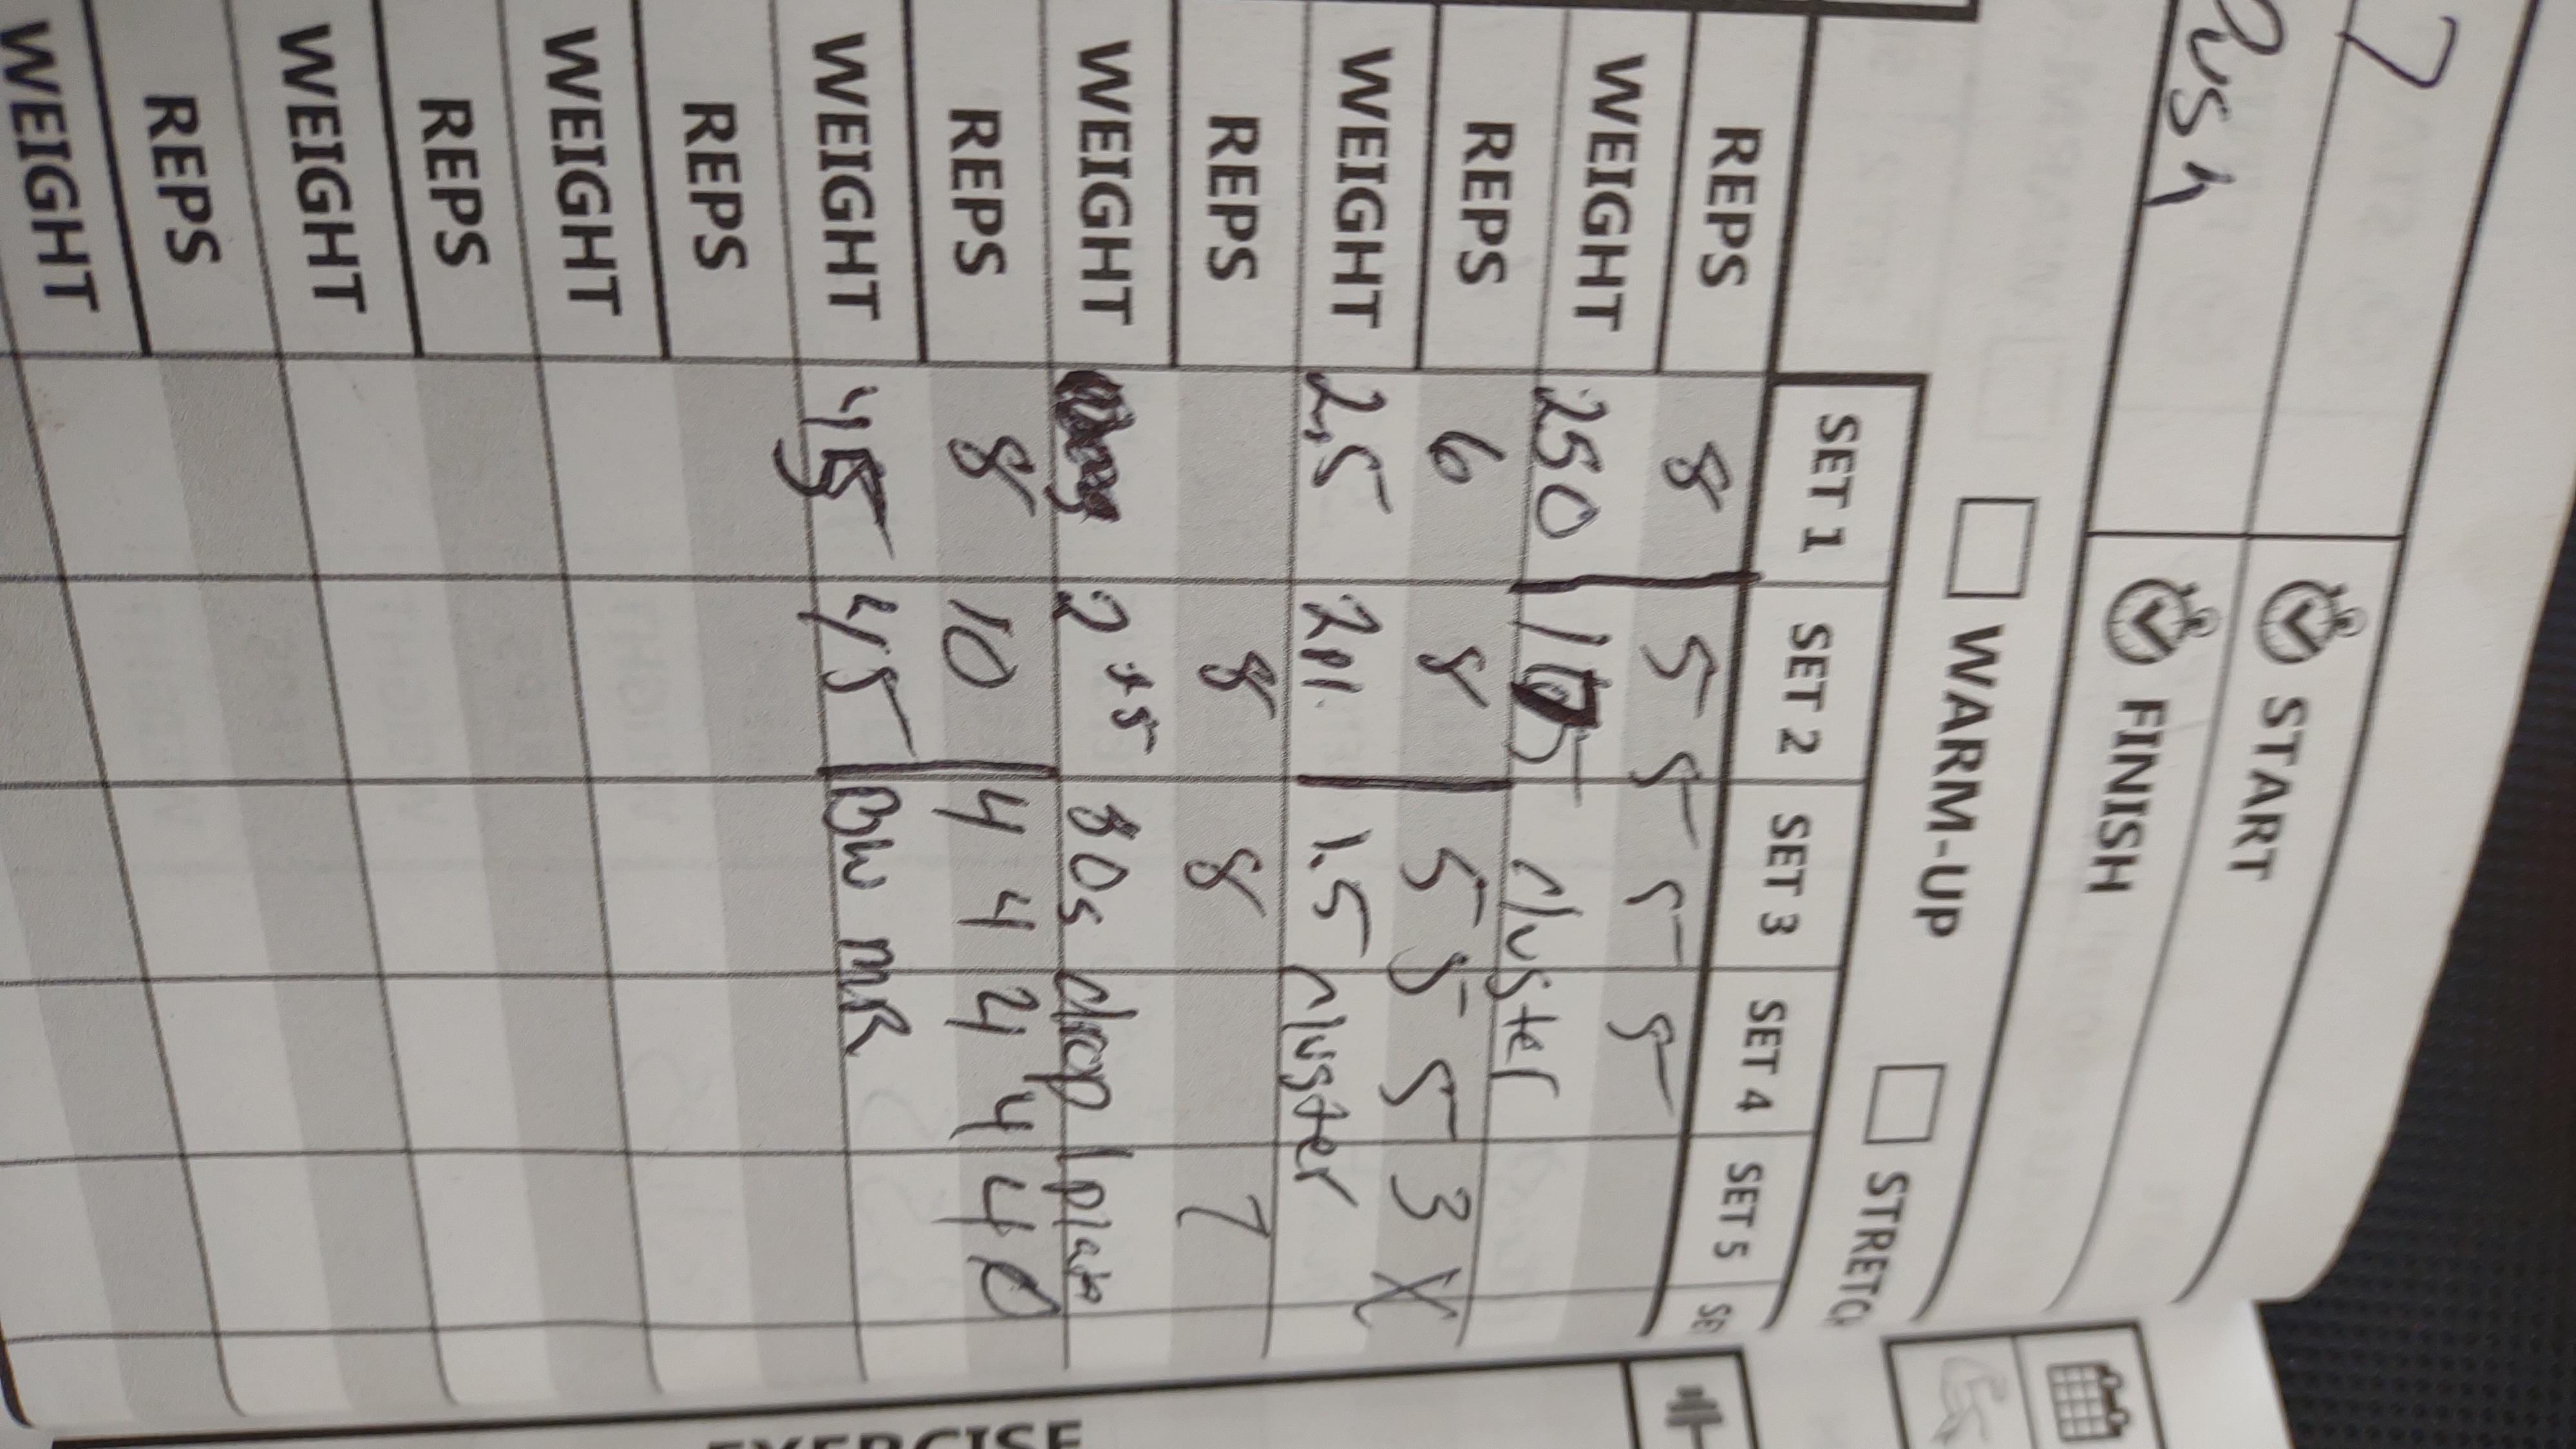 7
START
Push
FINISH
WARM-UP
STRETC
SET 1 SET 2 SET 3 SET 4 SET 5 SE
REPS 8 5 5 5 5
WEIGHT 250 cluster
REPS 6 8 5 5 5 3 X
WEIGHT 2.5 2pl. 1.5 cluster
REPS 8 8 7
WEIGHT 2 +5 30s drop 1 plate
REPS 8 10 4 4 4 4 4
WEIGHT 45 45 BW MR
REPS
WEIGHT
REPS
WEIGHT
REPS
WEIGHT
EXERCISE